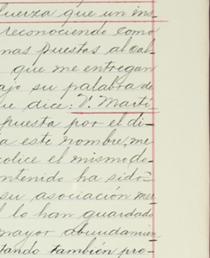 fuerza que un ins
reconociendo como
mas puestas al cal
que me entregan
ajo su palabra de
ue dice: P. Martí
puesta por el di
a este nombre, me
olice el mismo do
ntenido ha sido
su asociación me
l lo han guardado
mayor abundamien
tando también pro-